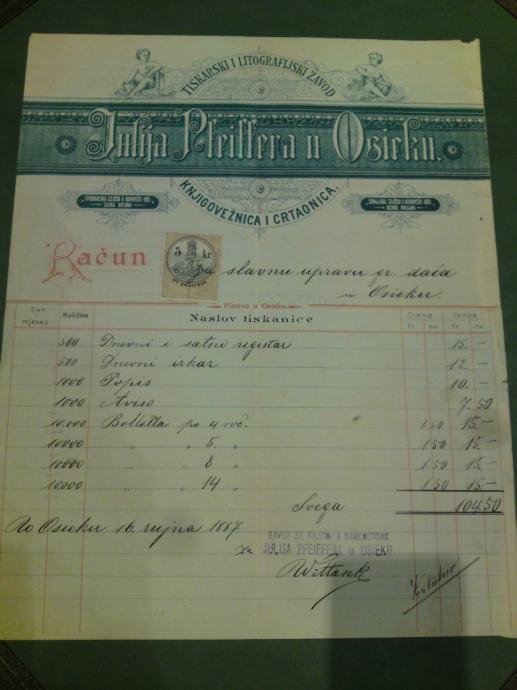 TISKARSKI I LITOGRAFIJSKI ZAVOD
Julija Pfeiffera u Osieku.
KNJIGOVEŽNICA I CRTAONICA.
Račun
5 kr
Za slavnu upravu gr. daća
u Osieku.
Plativo u Osieku.
Dan mjesec Količina Naslov tiskanice Ciena Iznos
fr. nč. fr. nč.
500 Dnevni i satni registar 15.—
500 Dnevni izkaz 12.—
1000 Popis 10.—
1000 Aviso 7.50
10.000 Bolletta po 4 nvč. 1.50 15.—
10000 „ „ 5. „ 1.50 15.—
10000 „ „ 8 „ 1.50 15.—
10000 „ „ 14 „ 1.50 15.—
Svega 104.50
U Osieku, 16. rujna 1887.
za
ZAVOD ZA KNJIGO- I KAMENOTISAK
JULIJA PFEIFFERA u OSIEKU